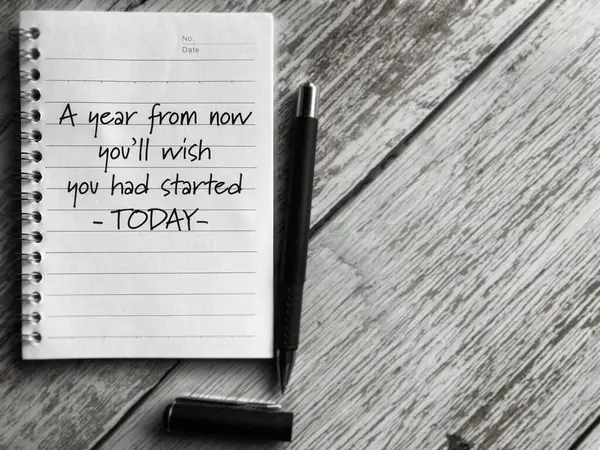 No.
Date
A year from now
you'll wish
you had started
- TODAY-